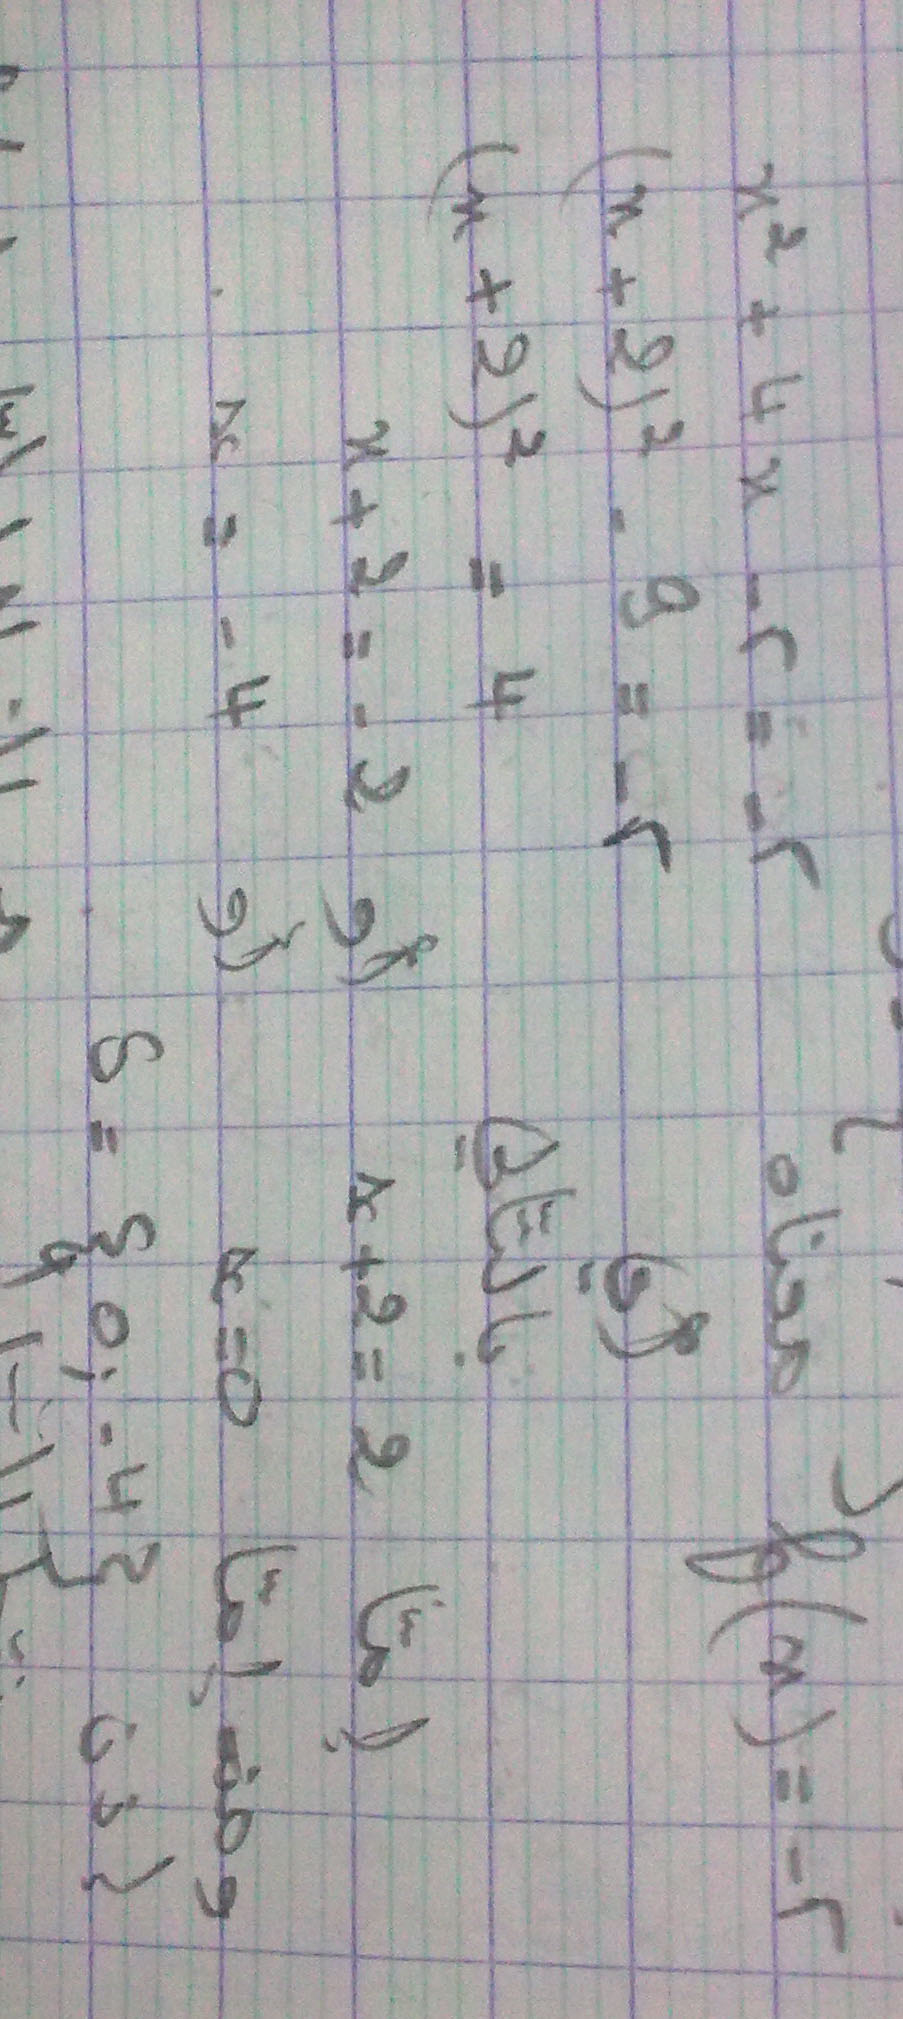 f(x) = -5 معناه x² + 4x - 5 = -5
أي (x + 2)² - 9 = -5
بالتالي (x + 2)² = 4
إما x + 2 = 2 أو x + 2 = -2
ومنه إما x = 0 أو x = -4
إذن S = {0; -4}